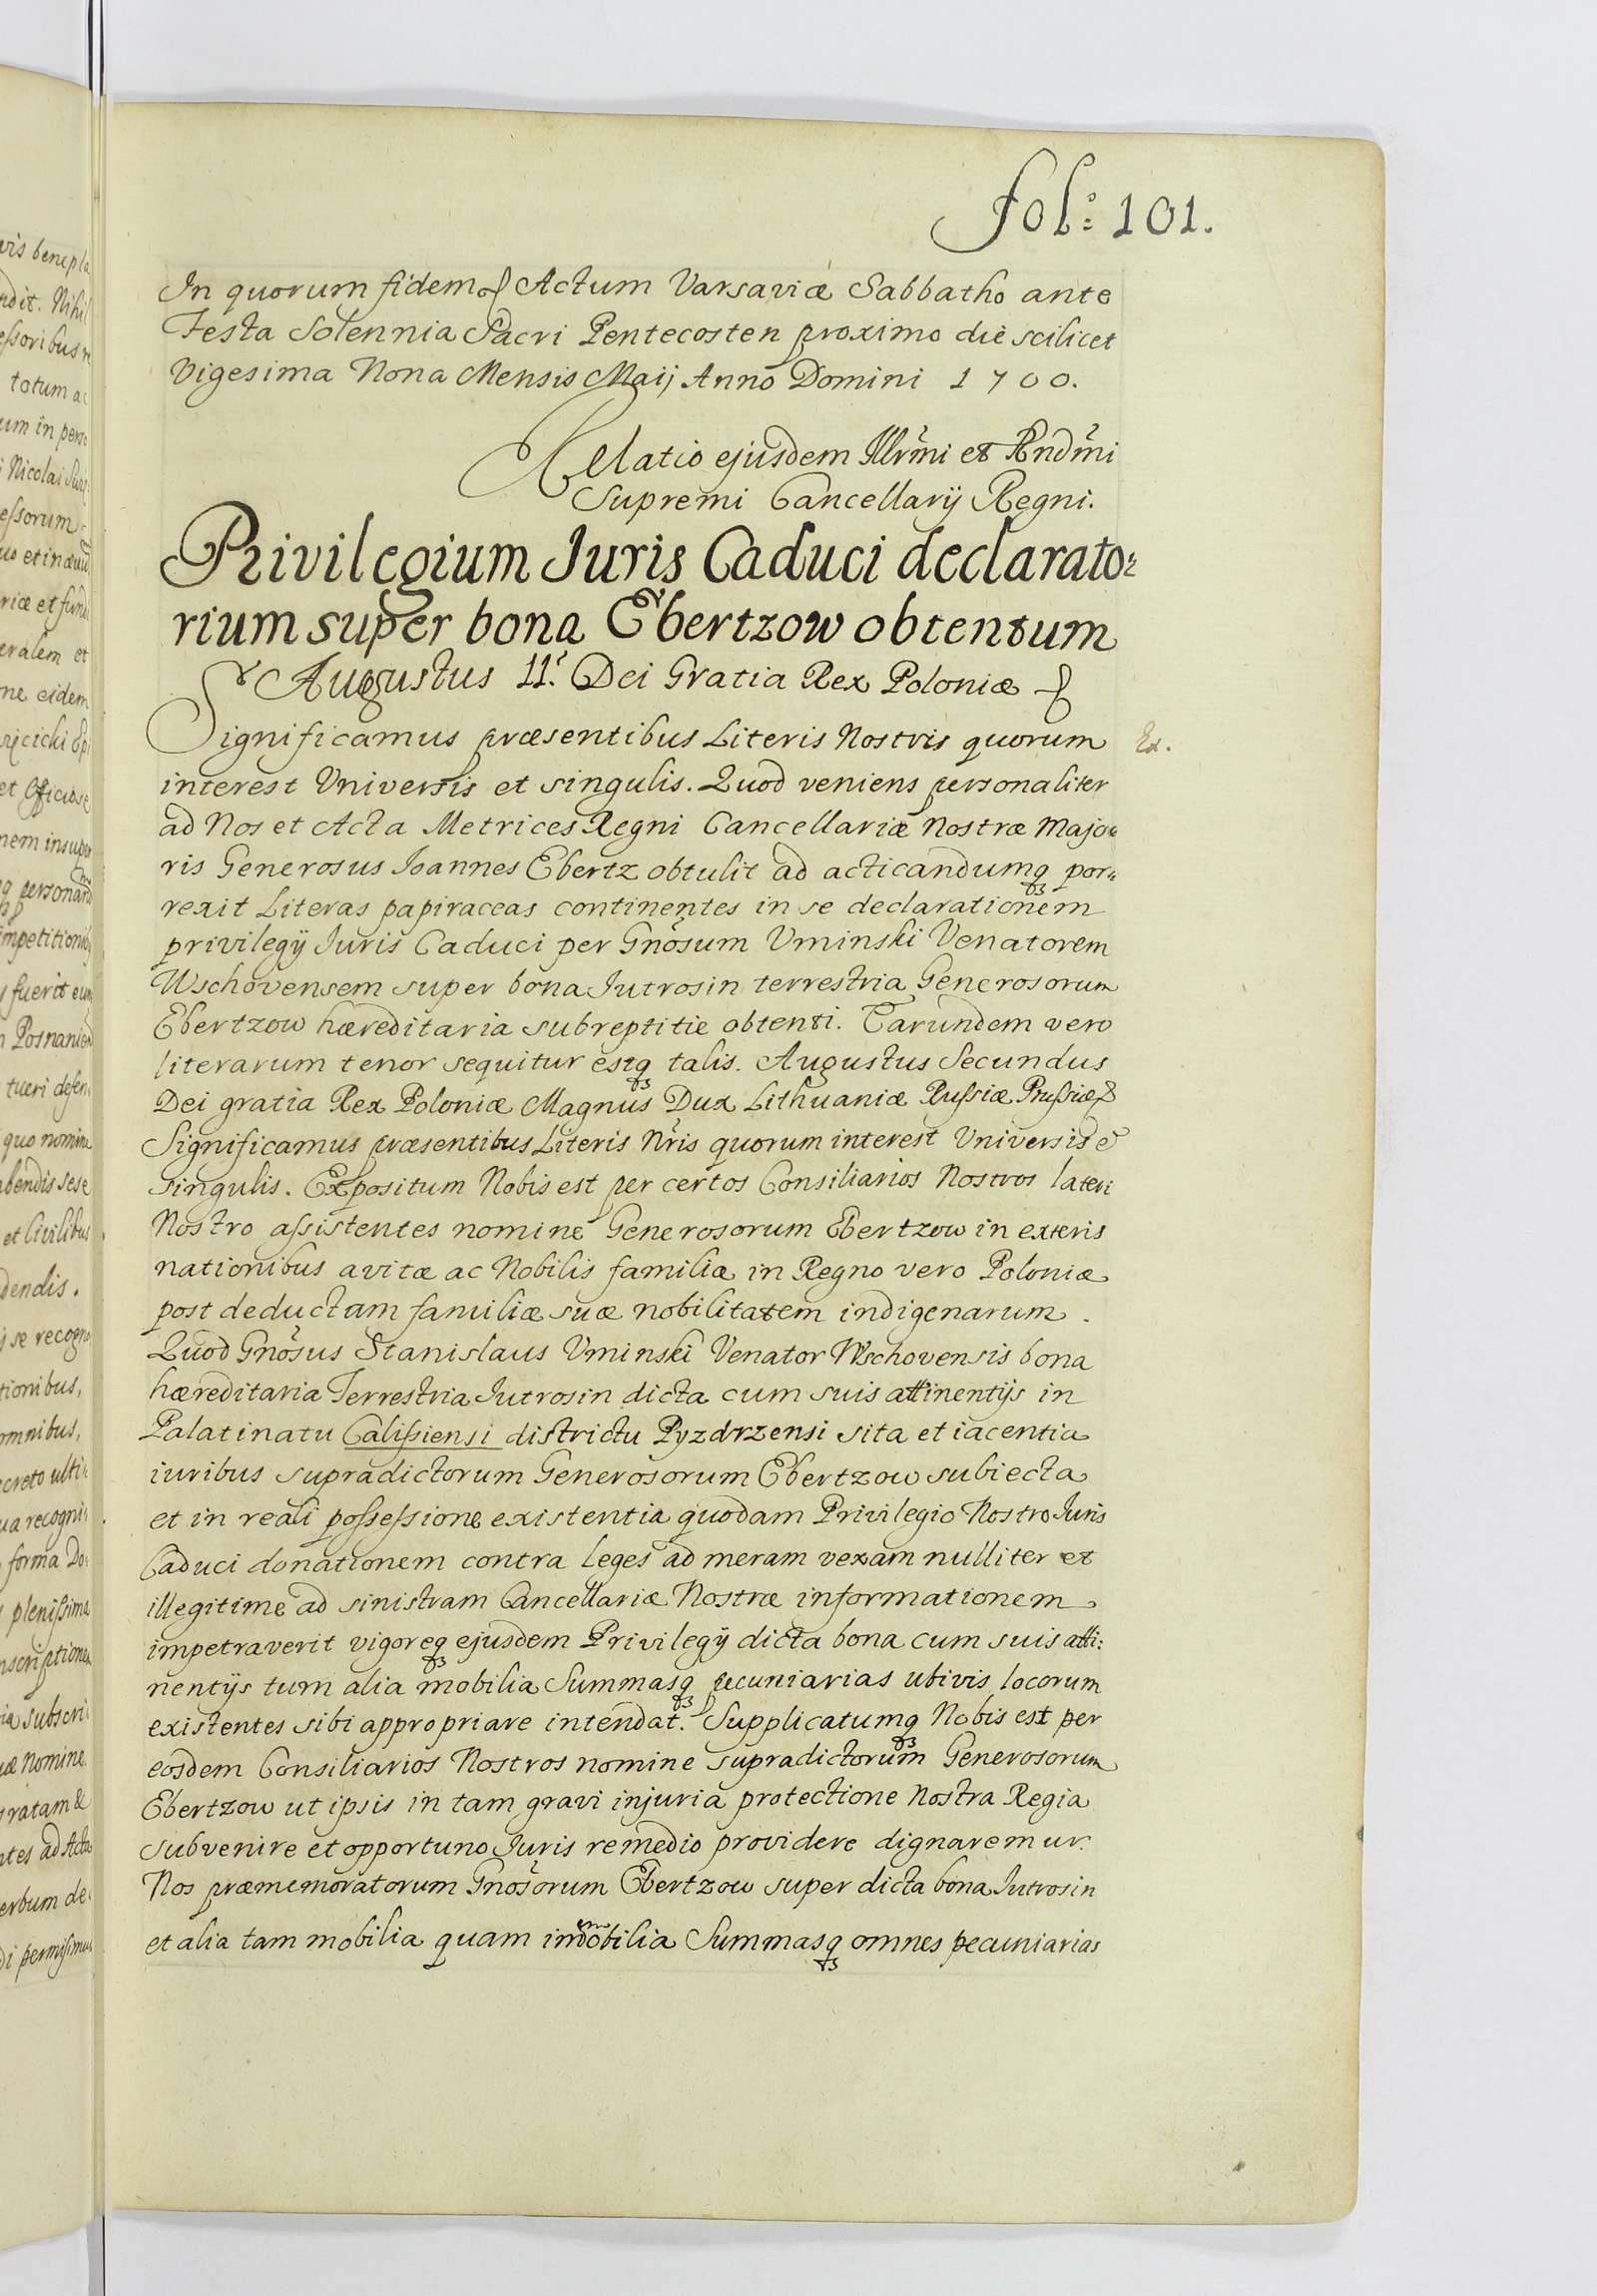 fol: 101.
In quorum fidem Actum Varsaviæ Sabbatho ante
Festa Solennia Sacri Pentecosten proximo die scilicet
Vigesima Nona Mensis Maij Anno Domini 1700.
Relatio ejusdem Illrm̃i et Rndm̃i
Supremi Cancellarij Regni.
Privilegium Juris Caduci declarato:
rium super bona Ebertzow obtentum
Augustus II. Dei Gratia Rex Poloniæ
Significamus præsentibus Literis Nostris quorum
interest Universis et singulis. Quod veniens personaliter
ad Nos et Acta Metrices Regni Cancellariæ Nostræ Majo:
ris Generosus Joannes Ebertz obtulit ad acticandumq3 por:
rexit Literas papiraceas continentes in se declarationem
privilegij Juris Caduci per Gnõsum Uminski Venatorem
Wschovensem super bona Jutrosin terrestria Generosorum
Ebertzow hæreditaria subreptitie obtenti. Earundem vero
literarum tenor sequitur estq3 talis. Augustus Secundus
Dei gratia Rex Poloniæ Magnus Dux Lithuaniæ Russiæ Prussiæ
Significamus præsentibus Literis Nr̃is quorum interest Universis &
singulis. Expositum Nobis est per certos Consiliarios Nostros lateri
Nostro assistentes nomine Generosorum Ebertzow in exteris
nationibus avitæ ac Nobilis familiæ in Regno vero Poloniæ
post deductam familiæ suæ nobilitatem indigenarum.
Quod Gnõsus Stanislaus Uminski Venator Wschovensis bona
hæreditaria Terrestria Jutrosin dicta cum suis attinentijs in
Palatinatu Calissiensi districtu Pyzdrzensi sita et iacentia
iuribus supradictorum Generosorum Ebertzow subiecta
et in reali possessione existentia quodam Privilegio Nostro Juris
Caduci donationem contra leges ad meram vexam nulliter et
illegitime ad sinistram Cancellariæ Nostræ informationem
impetraverit vigoreq3 ejusdem Privilegij dicta bona cum suis atti:
nentijs tum alia mobilia Summasq3 pecuniarias ubivis locorum
existentes sibi appropriare intendat. Supplicatumq3 Nobis est per
eosdem Consiliarios Nostros nomine supradictorum Generosorum
Ebertzow ut ipsis in tam gravi injuria protectione Nostra Regia
subvenire et opportuno Juris remedio providere dignaremur.
Nos præmemoratorum Gnõsorum Ebertzow super dicta bona Jutrosin
et alia tam mobilia quam immobilia Summasq3 omnes pecuniarias